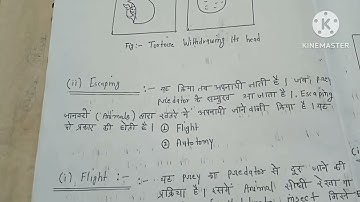 KINEMASTER
Fig:- Tortoise Withdrawing its head
(ii) Escaping :- यह क्रिया तब अपनायी जाती है। जब, Prey
Predator के सम्मुख आ जाता है। Escaping
जानवरों (Animals) द्वारा खतरे में अपनायी जाने वाली क्रिया है। यह
दो प्रकार की होती है। ① Flight
② Autotomy
(i) Flight :- यह Prey का Predator से दूर जाने की
प्रक्रिया है। इसमें Animal सीधी रेखा
insect